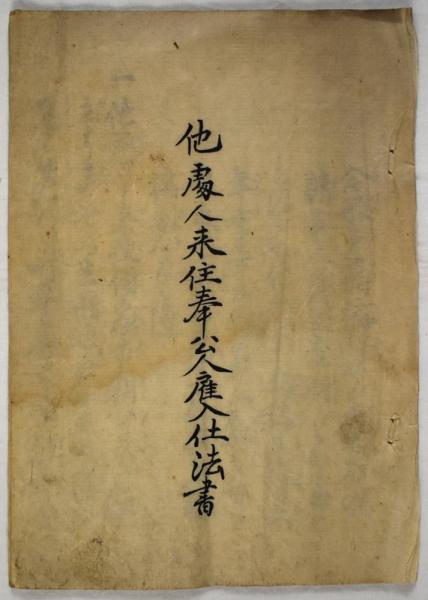 他處人来住奉公人雇入仕法書